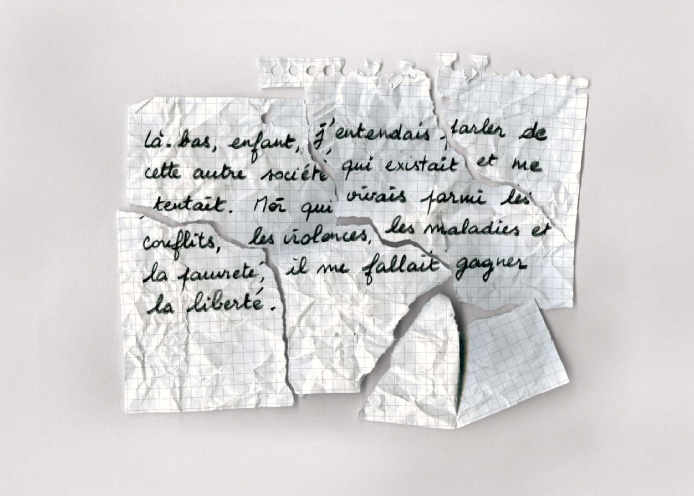 Là-bas, enfant, j'entendais parler de
cette autre société qui existait et me
tentait. Moi qui vivais parmi les
conflits, les violences, les maladies et
la pauvreté, il me fallait gagner
la liberté.